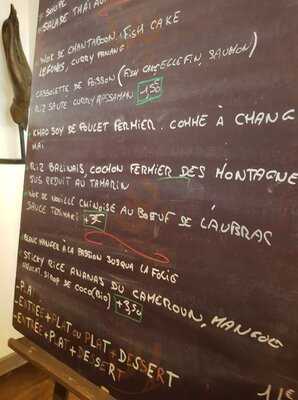 SALADE THAÏ AU
WOK DE CHANTABOON. FISH CAKE
LEGUMES, CURRY PANANG
CASSOLETTE DE POISSON (FISH CAKE, EGLEFIN, SAUMON)
RIZ SAUTE CURRY MASSAMAN
KHAO SOY DE POULET FERMIER. COMME À CHANG
MAI
RIZ BALINAIS, COCHON FERMIER DES MONTAGNE
JUS REDUIT AU TAMARIN
WOK DE NOUILLE CHINOISE AU BOEUF DE LAUBRAC
SAUCE +3€
BLANC MANGER À LA PASSION JUSQU'A LA FOLIE
STICKY RICE ANANAS DU CAMEROUN, MANGUE
SIROP DE COCO (BIO) +3,50
-P.A.
-ENTRÉE + PLAT OU PLAT + DESSERT
-ENTREE + PLAT + DESSERT